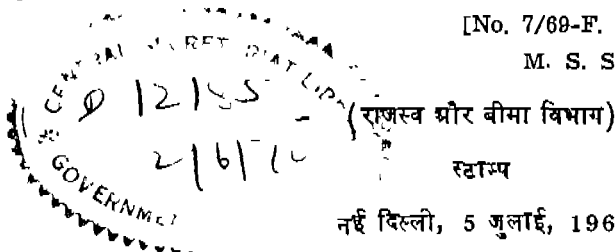 [No. 7/69-F.
M. S. S
CENTRAL SECRETARIAT
GOVERNMENT
2/6/7
(राजस्व और बीमा विभाग)
स्टाम्प
नई दिल्ली, 5 जुलाई, 196